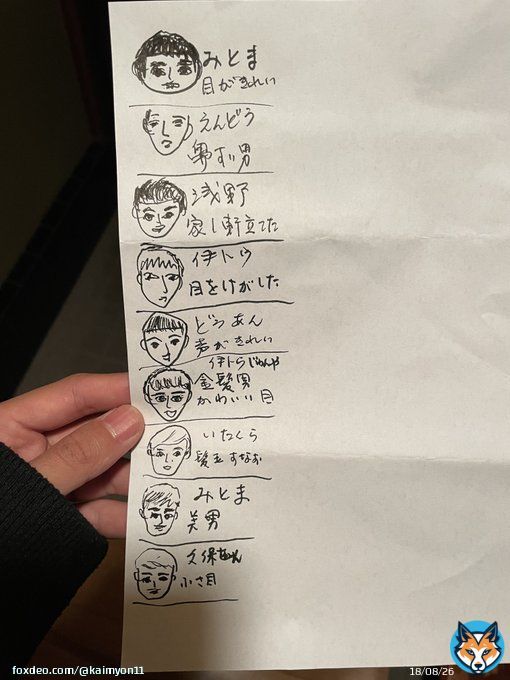 みとま
目がきれい
えんどう
男
浅野
家1軒立てた
伊トウ
目をけがした
どうあん
声がきれい
伊トウじゅんや
金髪男
かわいい目
いたくら
髪型すなお
みとま
美男
久保
小さ目
foxdeo.com/@kaimyon11
18/08/26